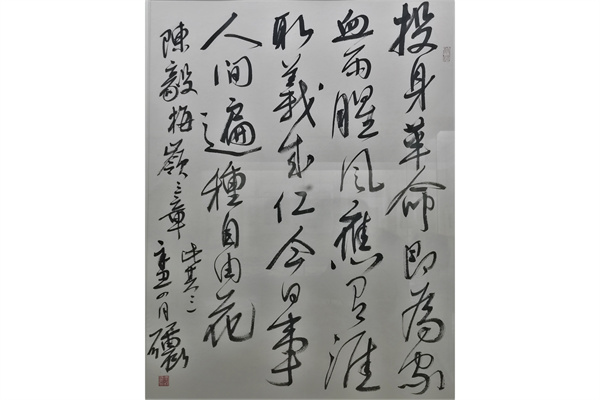 投身革命即為家
血雨腥風應有涯
取義成仁今日事
人間遍種自由花
陳毅梅嶺三章
此其三
月